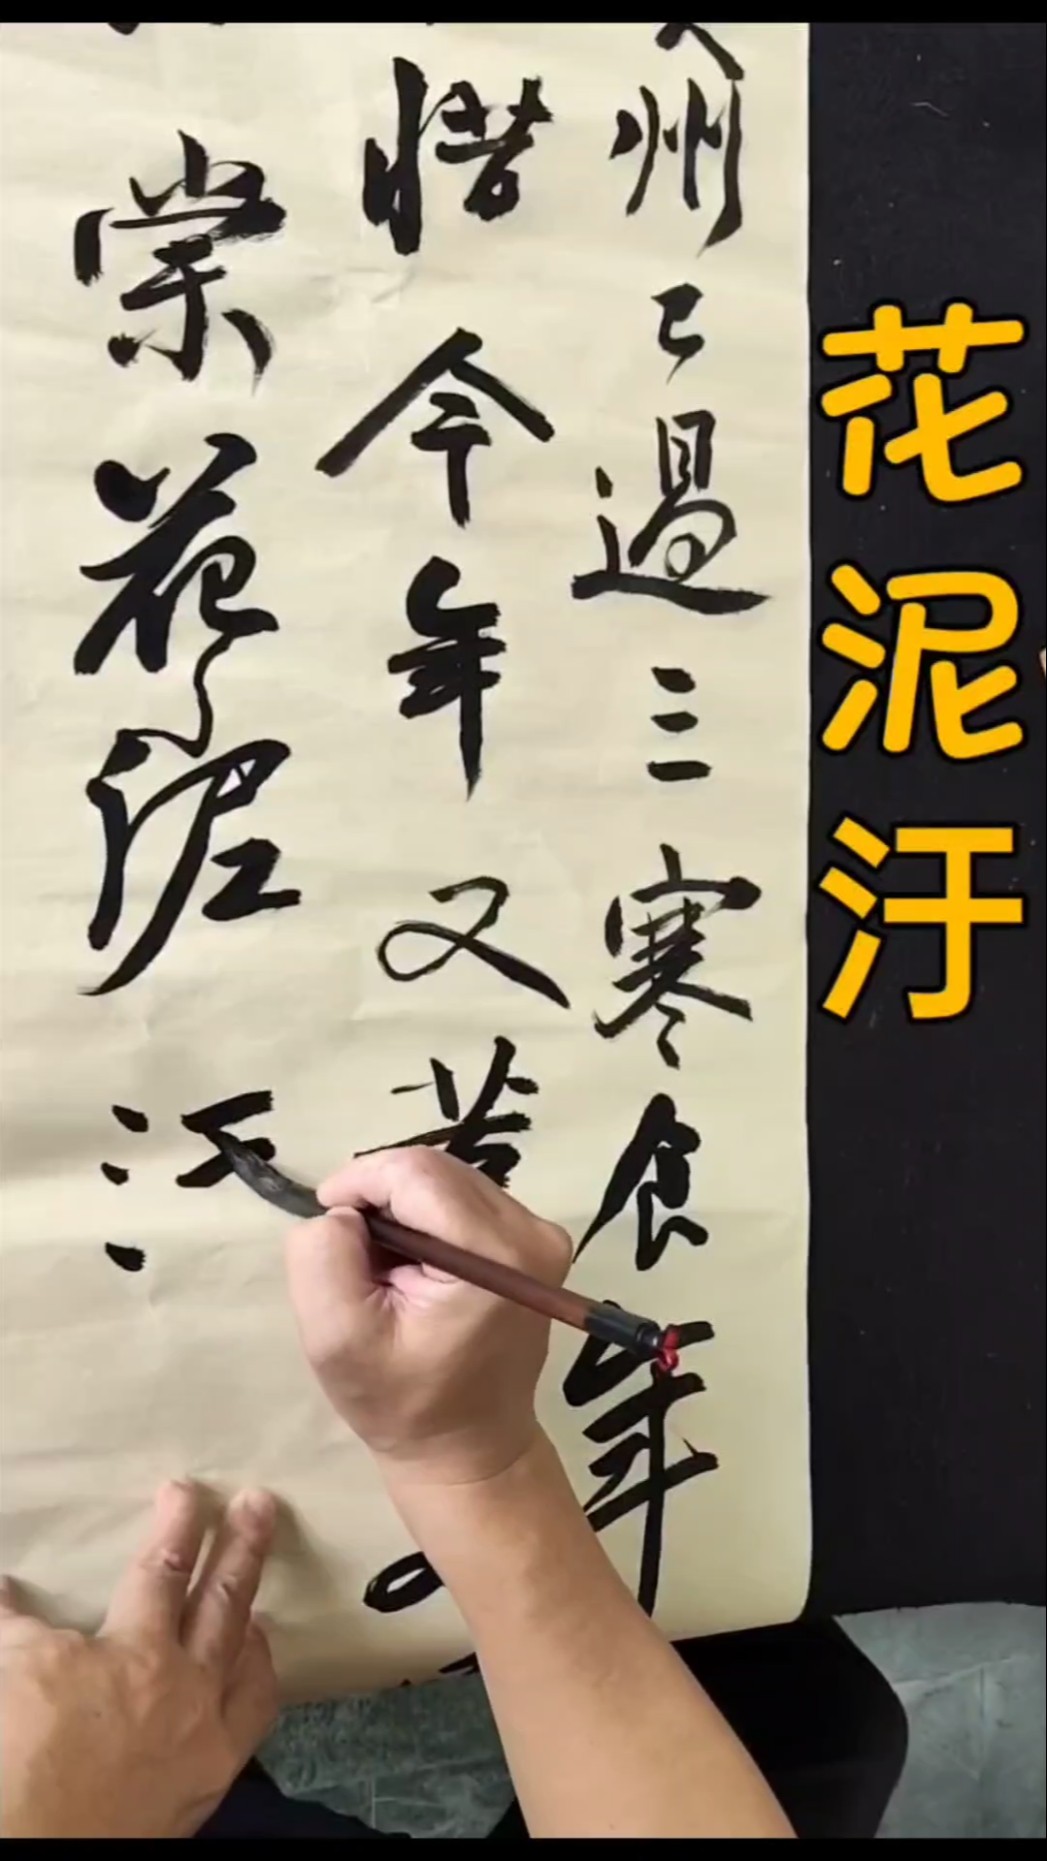 花泥汙
州已過三寒食年
惜今年又苦
棠花泥